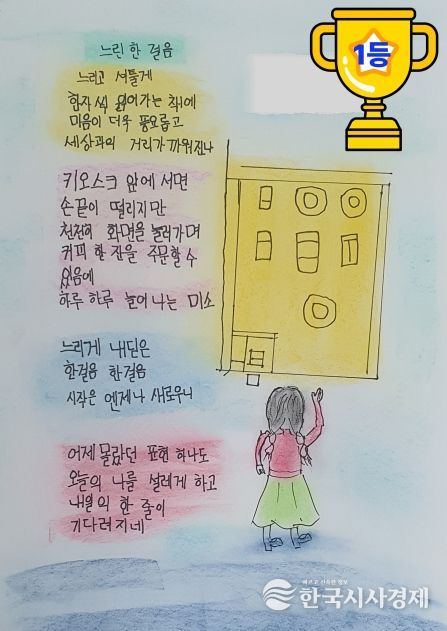 느린 한 걸음
1등
느리고 서툴게
한자 씩 읽어가는 책에
마음이 더욱 풍요롭고
세상과의 거리가 까워진나
키오스크 앞에 서면
손끝이 떨리지만
천천히 화면을 눌러가며
커피 한 잔을 주문할 수
있음에
하루 하루 늘어 나는 미소
느리게 내딛은
한걸음 한걸음
시작은 엔제나 새로우니
어제 몰랐던 표현 하나도
오늘의 나를 설레게 하고
내일의 한 줄이
기다려지네
빠르고 신속한 정보
한국시사경제